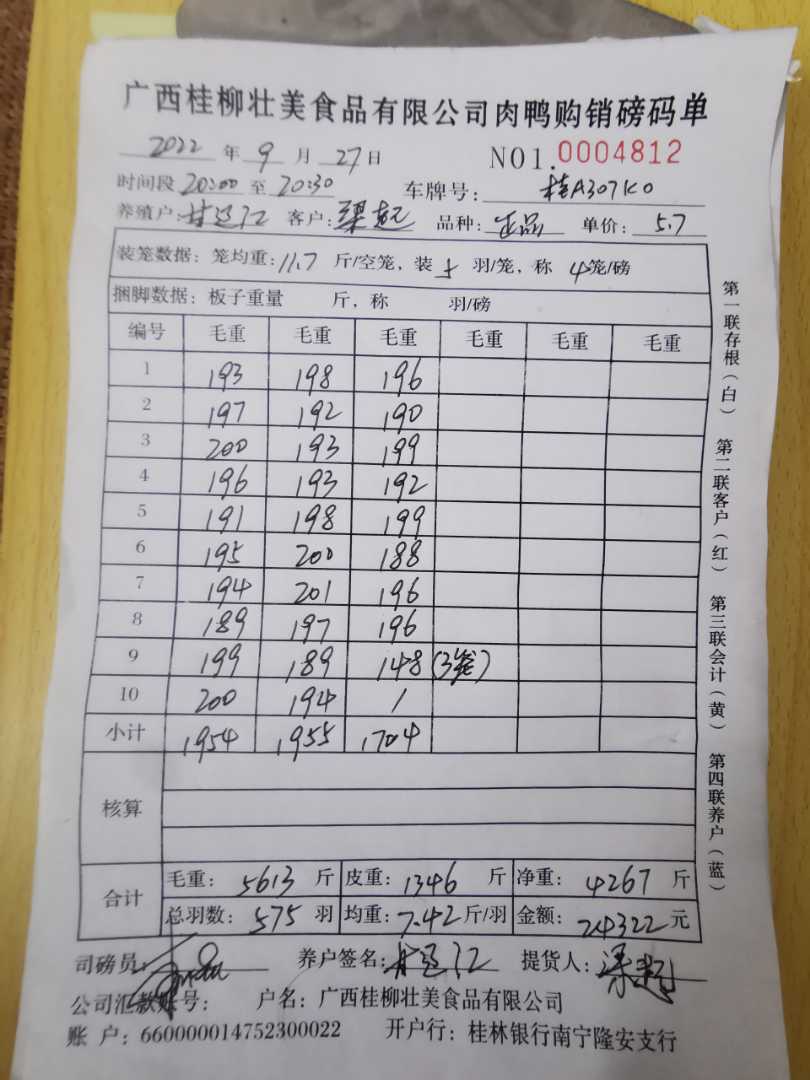 广西桂柳壮美食品有限公司肉鸭购销磅码单
2022 年 9 月 27 日 NO1.0004812
时间段 20:00 至 20:30 车牌号: 桂A307K0
养殖户: 甘廷江 客户: 梁超 品种: 正品 单价: 5.7
装笼数据: 笼均重: 11.7 斤/空笼, 装 5 羽/笼, 称 4 笼/磅
捆脚数据: 板子重量 斤, 称 羽/磅
编号 毛重 毛重 毛重 毛重 毛重 毛重
1 193 198 196
2 197 192 190
3 200 193 199
4 196 193 192
5 191 198 199
6 195 200 188
7 194 201 196
8 189 197 196
9 199 189 148 (3笼)
10 200 194 /
小计 1954 1955 1704
核算
合计
毛重: 5613 斤 皮重: 1346 斤 净重: 4267 斤
总羽数: 575 羽 均重: 7.42 斤/羽 金额: 24322 元
司磅员: 养户签名: 甘廷江 提货人: 梁超
公司汇款账号: 户名: 广西桂柳壮美食品有限公司
账 户: 660000014752300022 开户行: 桂林银行南宁隆安支行
第一联存根(白) 第二联客户(红) 第三联会计(黄) 第四联养户(蓝)